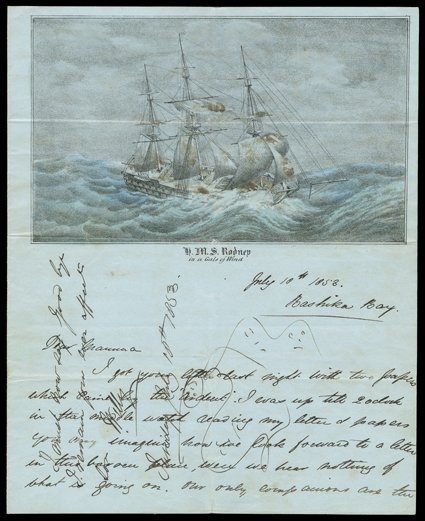 H.M.S. Rodney
in a Gale of Wind
July 10th 1853.
Bashika Bay.
I got your last night with two papers
which came by the I was up till 2 oclock
in the middle watch reading my letter & papers
you may imagine how we look forward to a letter
in this place, were we hear nothing of
what is going on. Our only companions are the
I must now say Good bye
I remain your ever
Sunday July 10th 1853.